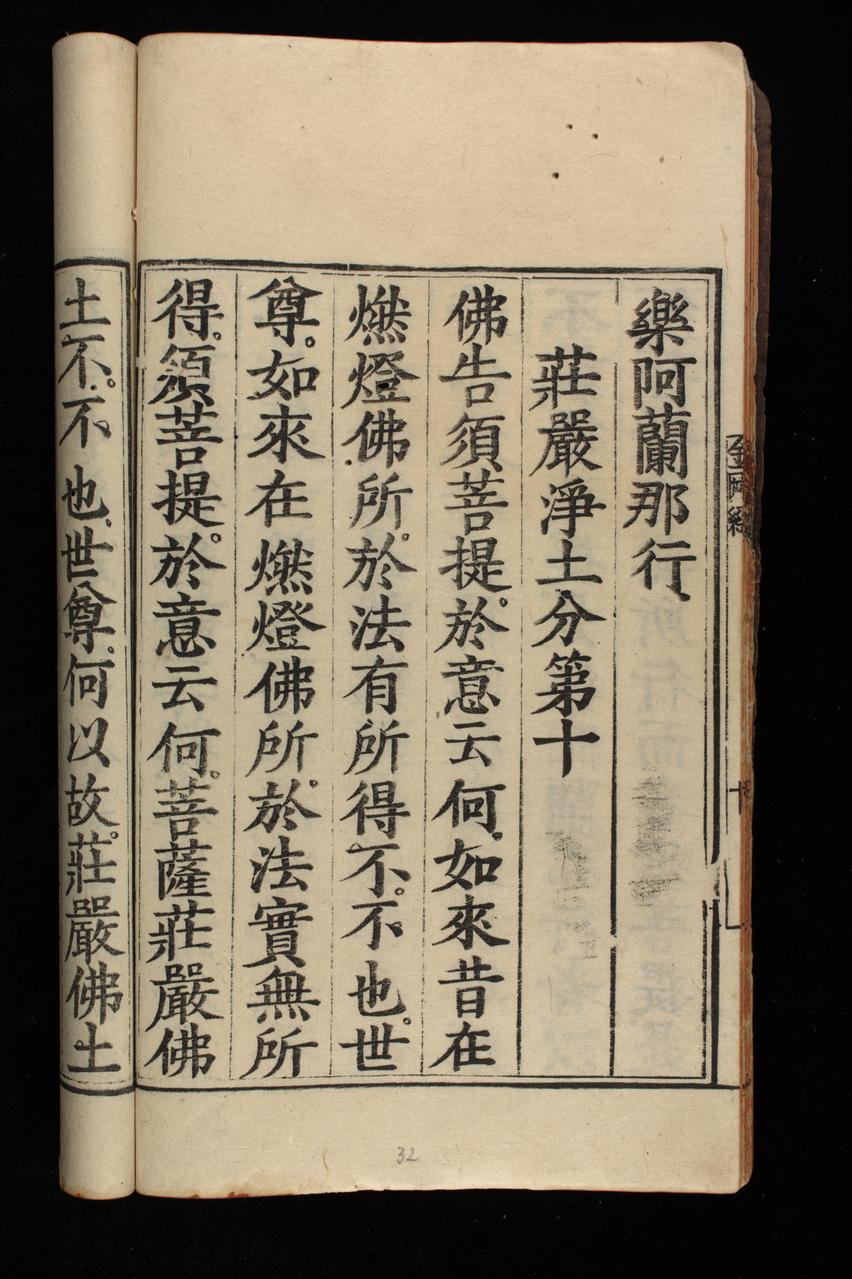 樂阿蘭那行、
莊嚴淨土分第十
佛告須菩提。於意云何。如來昔在
燃燈佛所。於法有所得不。不也。世
尊。如來在燃燈佛所。於法實無所
得。須菩提。於意云何。菩薩莊嚴佛
土不。不也、世尊。何以故。莊嚴佛土
32